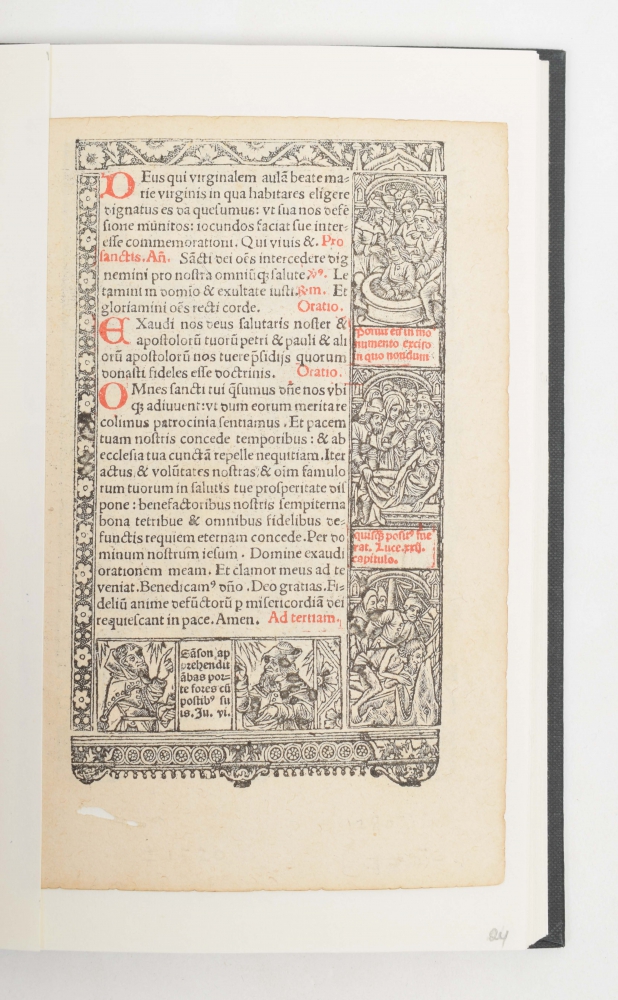 DEus qui virginalem aulā beate ma-
rie virginis in qua habitares eligere
dignatus es da quesumus: vt sua nos defē
sione munitos: iocundos faciat sue inter-
esse commemorationi. Qui viuis &. Pro
sanctis. Añ. Sācti dei oēs intercedere dig
nemini pro nostra omniū q; salute. Le
tamini in domio & exultate iusti. Et
gloriamini oēs recti corde. Oratio.
EXaudi nos deus salutaris noster &
apostolorū tuorū petri & pauli & ali
orū apostolorū nos tuere p̄sidijs quorum
donasti fideles esse doctrinis. Oratio.
OMnes sancti tui q̄sumus dñe nos vbi
q; adiuuent: vt dum eorum merita re
colimus patrocinia sentiamus. Et pacem
tuam nostris concede temporibus: & ab
ecclesia tua cunctā repelle nequitiam. Iter
actus & volūtates nostras & oīm famulo
rum tuorum in salutis tue prosperitate dis
pone: benefactoribus nostris sempiterna
bona retribue & omnibus fidelibus de-
functis requiem eternam concede. Per do
minum nostrum iesum. Domine exaudi
orationem meam. Et clamor meus ad te
veniat. Benedicamꝰ dño. Deo gratias. Fi-
deliū anime defūctorū p misericordiā dei
requiescant in pace. Amen. Ad tertiam.
Posuit eū in mo
numento exciso
in quo nondum
quisq̄ positꝰ fue
rat. Luce. xxij.
capitulo.
Sāson ap
prehendit
ābas por-
te fores cū
postibꝰ su
is. Ju. vi.
24